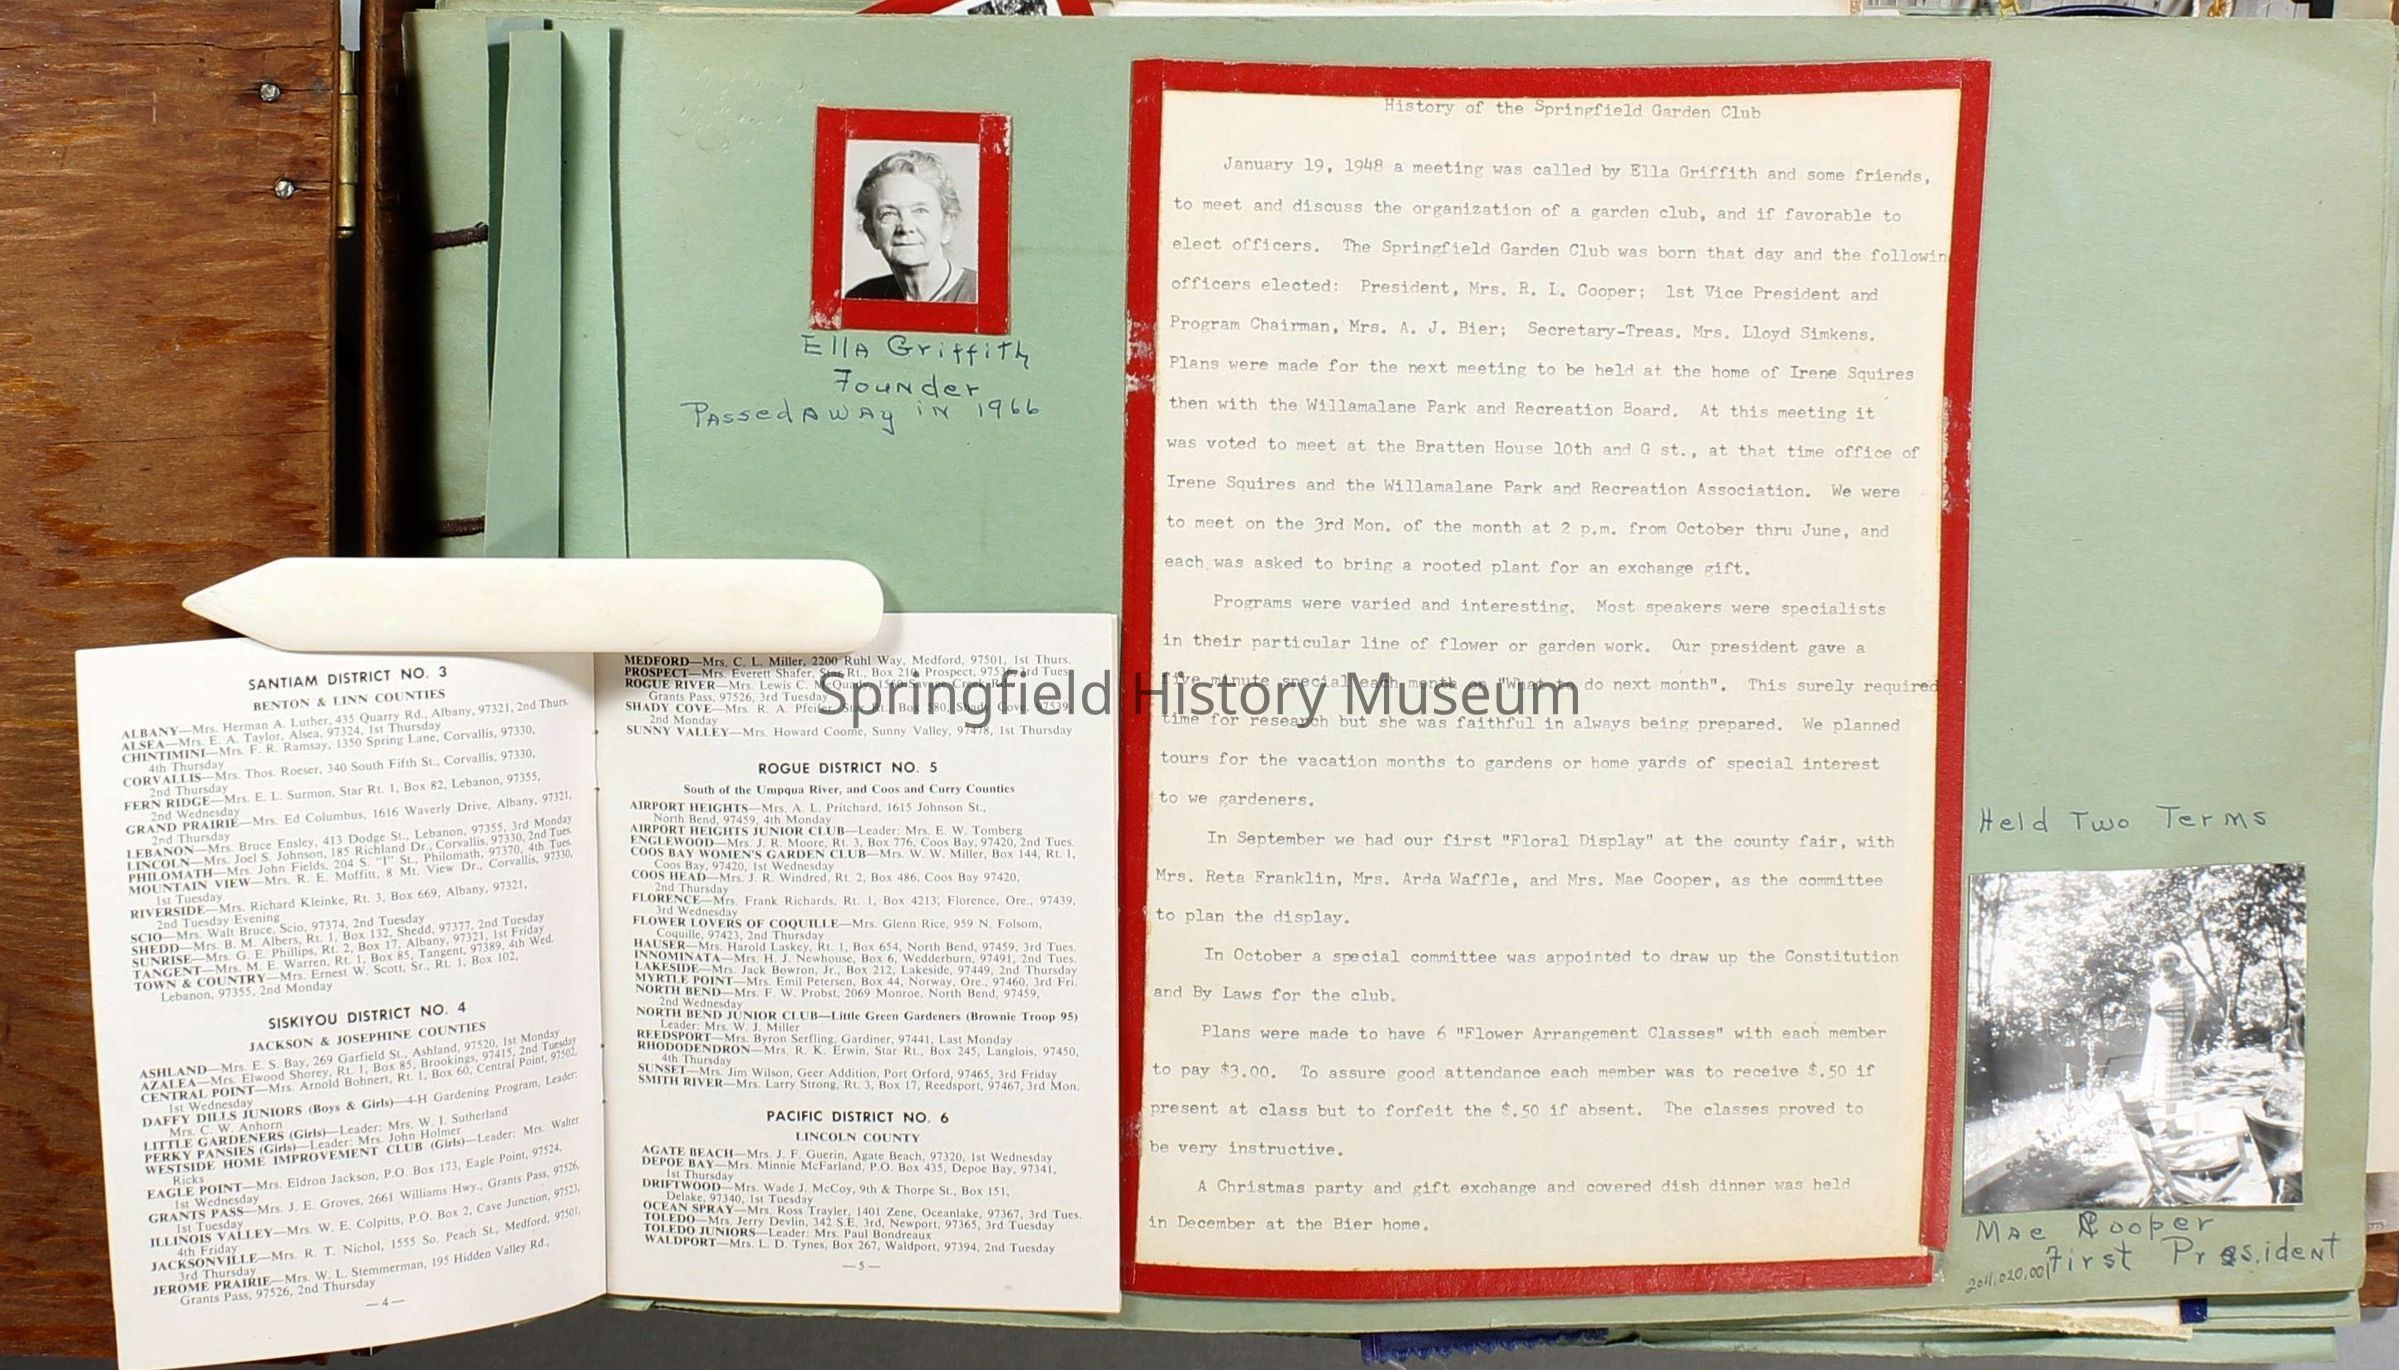 Ella Griffith
Founder
Passed Away in 1966
History of the Springfield Garden Club
January 19, 1948 a meeting was called by Ella Griffith and some friends,
to meet and discuss the organization of a garden club, and if favorable to
elect officers. The Springfield Garden Club was born that day and the followin
officers elected: President, Mrs. R. L. Cooper; 1st Vice President and
Program Chairman, Mrs. A. J. Bier; Secretary-Treas. Mrs. Lloyd Simkens.
Plans were made for the next meeting to be held at the home of Irene Squires
then with the Willamalane Park and Recreation Board. At this meeting it
was voted to meet at the Bratten House 10th and G st., at that time office of
Irene Squires and the Willamalane Park and Recreation Association. We were
to meet on the 3rd Mon. of the month at 2 p.m. from October thru June, and
each was asked to bring a rooted plant for an exchange gift.
Programs were varied and interesting. Most speakers were specialists
in their particular line of flower or garden work. Our president gave a
five minute special each month on "What to do next month". This surely required
time for research but she was faithful in always being prepared. We planned
tours for the vacation months to gardens or home yards of special interest
to we gardeners.
In September we had our first "Floral Display" at the county fair, with
Mrs. Reta Franklin, Mrs. Arda Waffle, and Mrs. Mae Cooper, as the committee
to plan the display.
In October a special committee was appointed to draw up the Constitution
and By Laws for the club.
Plans were made to have 6 "Flower Arrangement Classes" with each member
to pay $3.00. To assure good attendance each member was to receive $.50 if
present at class but to forfeit the $.50 if absent. The classes proved to
be very instructive.
A Christmas party and gift exchange and covered dish dinner was held
in December at the Bier home.
Held Two Terms
Mae Cooper
First President
2011.020.001
Springfield History Museum
SANTIAM DISTRICT NO. 3
BENTON & LINN COUNTIES
ALBANY—Mrs. Herman A. Luther, 435 Quarry Rd., Albany, 97321, 2nd Thurs.
ALSEA—Mrs. E. A. Taylor, Alsea, 97324, 1st Thursday
CHINTIMINI—Mrs. F. R. Ramsay, 1350 Spring Lane, Corvallis, 97330,
4th Thursday
CORVALLIS—Mrs. Thos. Roeser, 340 South Fifth St., Corvallis, 97330,
2nd Thursday
FERN RIDGE—Mrs. E. L. Surmon, Star Rt. 1, Box 82, Lebanon, 97355,
2nd Wednesday
GRAND PRAIRIE—Mrs. Ed Columbus, 1616 Waverly Drive, Albany, 97321,
2nd Thursday
LEBANON—Mrs. Bruce Ensley, 413 Dodge St., Lebanon, 97355, 3rd Monday
LINCOLN—Mrs. Joel S. Johnson, 185 Richland Dr., Corvallis, 97330, 2nd Tues.
PHILOMATH—Mrs. John Fields, 204 S. "I" St., Philomath, 97370, 4th Tues.
MOUNTAIN VIEW—Mrs. R. E. Moffitt, 8 Mt. View Dr., Corvallis, 97330,
1st Tuesday
RIVERSIDE—Mrs. Richard Kleinke, Rt. 3, Box 669, Albany, 97321,
2nd Tuesday Evening
SCIO—Mrs. Walt Bruce, Scio, 97374, 2nd Tuesday
SHEDD—Mrs. B. M. Albers, Rt. 1, Box 132, Shedd, 97377, 2nd Tuesday
SUNRISE—Mrs. G. E. Phillips, Rt. 2, Box 17, Albany, 97321, 1st Friday
TANGENT—Mrs. M. E. Warren, Rt. 1, Box 85, Tangent, 97389, 4th Wed.
TOWN & COUNTRY—Mrs. Ernest W. Scott, Sr., Rt. 1, Box 102,
Lebanon, 97355, 2nd Monday
SISKIYOU DISTRICT NO. 4
JACKSON & JOSEPHINE COUNTIES
ASHLAND—Mrs. E. S. Bay, 269 Garfield St., Ashland, 97520, 1st Monday
AZALEA—Mrs. Elwood Shorey, Rt. 1, Box 85, Brookings, 97415, 2nd Tuesday
CENTRAL POINT—Mrs. Arnold Bohnert, Rt. 1, Box 60, Central Point, 97502,
1st Wednesday
DAFFY DILLS JUNIORS (Boys & Girls)—4-H Gardening Program, Leader:
Mrs. C. W. Anhorn
LITTLE GARDENERS (Girls)—Leader: Mrs. W. I. Sutherland
PERKY PANSIES (Girls)—Leader: Mrs. John Holmer
WESTSIDE HOME IMPROVEMENT CLUB (Girls)—Leader: Mrs. Walter
Ricks
EAGLE POINT—Mrs. Eldron Jackson, P.O. Box 173, Eagle Point, 97524,
1st Wednesday
GRANTS PASS—Mrs. J. E. Groves, 2661 Williams Hwy., Grants Pass, 97526,
1st Tuesday
ILLINOIS VALLEY—Mrs. W. E. Colpitts, P.O. Box 2, Cave Junction, 97523,
4th Friday
JACKSONVILLE—Mrs. R. T. Nichol, 1555 So. Peach St., Medford, 97501,
3rd Thursday
JEROME PRAIRIE—Mrs. W. L. Stemmerman, 195 Hidden Valley Rd.,
Grants Pass, 97526, 2nd Thursday
—4—
MEDFORD—Mrs. C. L. Miller, 2200 Ruhl Way, Medford, 97501, 1st Thurs.
PROSPECT—Mrs. Everett Shafer, Star Rt., Box 210, Prospect, 97536, 3rd Tues.
ROGUE RIVER—Mrs. Lewis C.
Grants Pass, 97526, 3rd Tuesday
SHADY COVE—Mrs. R. A. Pfeifer, Star Rt., Box 580, Shady Cove, 97539,
2nd Monday
SUNNY VALLEY—Mrs. Howard Coome, Sunny Valley, 97478, 1st Thursday
ROGUE DISTRICT NO. 5
South of the Umpqua River, and Coos and Curry Counties
AIRPORT HEIGHTS—Mrs. A. L. Pritchard, 1615 Johnson St.,
North Bend, 97459, 4th Monday
AIRPORT HEIGHTS JUNIOR CLUB—Leader: Mrs. E. W. Tomberg
ENGLEWOOD—Mrs. J. R. Moore, Rt. 3, Box 776, Coos Bay, 97420, 2nd Tues.
COOS BAY WOMEN'S GARDEN CLUB—Mrs. W. W. Miller, Box 144, Rt. 1,
Coos Bay, 97420, 1st Wednesday
COOS HEAD—Mrs. J. R. Windred, Rt. 2, Box 486, Coos Bay 97420,
2nd Thursday
FLORENCE—Mrs. Frank Richards, Rt. 1, Box 4213, Florence, Ore., 97439,
3rd Wednesday
FLOWER LOVERS OF COQUILLE—Mrs. Glenn Rice, 959 N. Folsom,
Coquille, 97423, 2nd Thursday
HAUSER—Mrs. Harold Laskey, Rt. 1, Box 654, North Bend, 97459, 3rd Tues.
INNOMINATA—Mrs. H. J. Newhouse, Box 6, Wedderburn, 97491, 2nd Tues.
LAKESIDE—Mrs. Jack Bowron, Jr., Box 212, Lakeside, 97449, 2nd Thursday
MYRTLE POINT—Mrs. Emil Petersen, Box 44, Norway, Ore., 97460, 3rd Fri.
NORTH BEND—Mrs. F. W. Probst, 2069 Monroe, North Bend, 97459,
2nd Wednesday
NORTH BEND JUNIOR CLUB—Little Green Gardeners (Brownie Troop 95)
Leader: Mrs. W. J. Miller
REEDSPORT—Mrs. Byron Serfling, Gardiner, 97441, Last Monday
RHODODENDRON—Mrs. R. K. Erwin, Star Rt., Box 245, Langlois, 97450,
4th Thursday
SUNSET—Mrs. Jim Wilson, Geer Addition, Port Orford, 97465, 3rd Friday
SMITH RIVER—Mrs. Larry Strong, Rt. 3, Box 17, Reedsport, 97467, 3rd Mon.
PACIFIC DISTRICT NO. 6
LINCOLN COUNTY
AGATE BEACH—Mrs. J. F. Guerin, Agate Beach, 97320, 1st Wednesday
DEPOE BAY—Mrs. Minnie McFarland, P.O. Box 435, Depoe Bay, 97341,
1st Thursday
DRIFTWOOD—Mrs. Wade J. McCoy, 9th & Thorpe St., Box 151,
Delake, 97340, 1st Tuesday
OCEAN SPRAY—Mrs. Ross Trayler, 1401 Zene, Oceanlake, 97367, 3rd Tues.
TOLEDO—Mrs. Jerry Devlin, 342 S.E. 3rd, Newport, 97365, 3rd Tuesday
TOLEDO JUNIORS—Leader: Mrs. Paul Bondreaux
WALDPORT—Mrs. L. D. Tynes, Box 267, Waldport, 97394, 2nd Tuesday
—5—